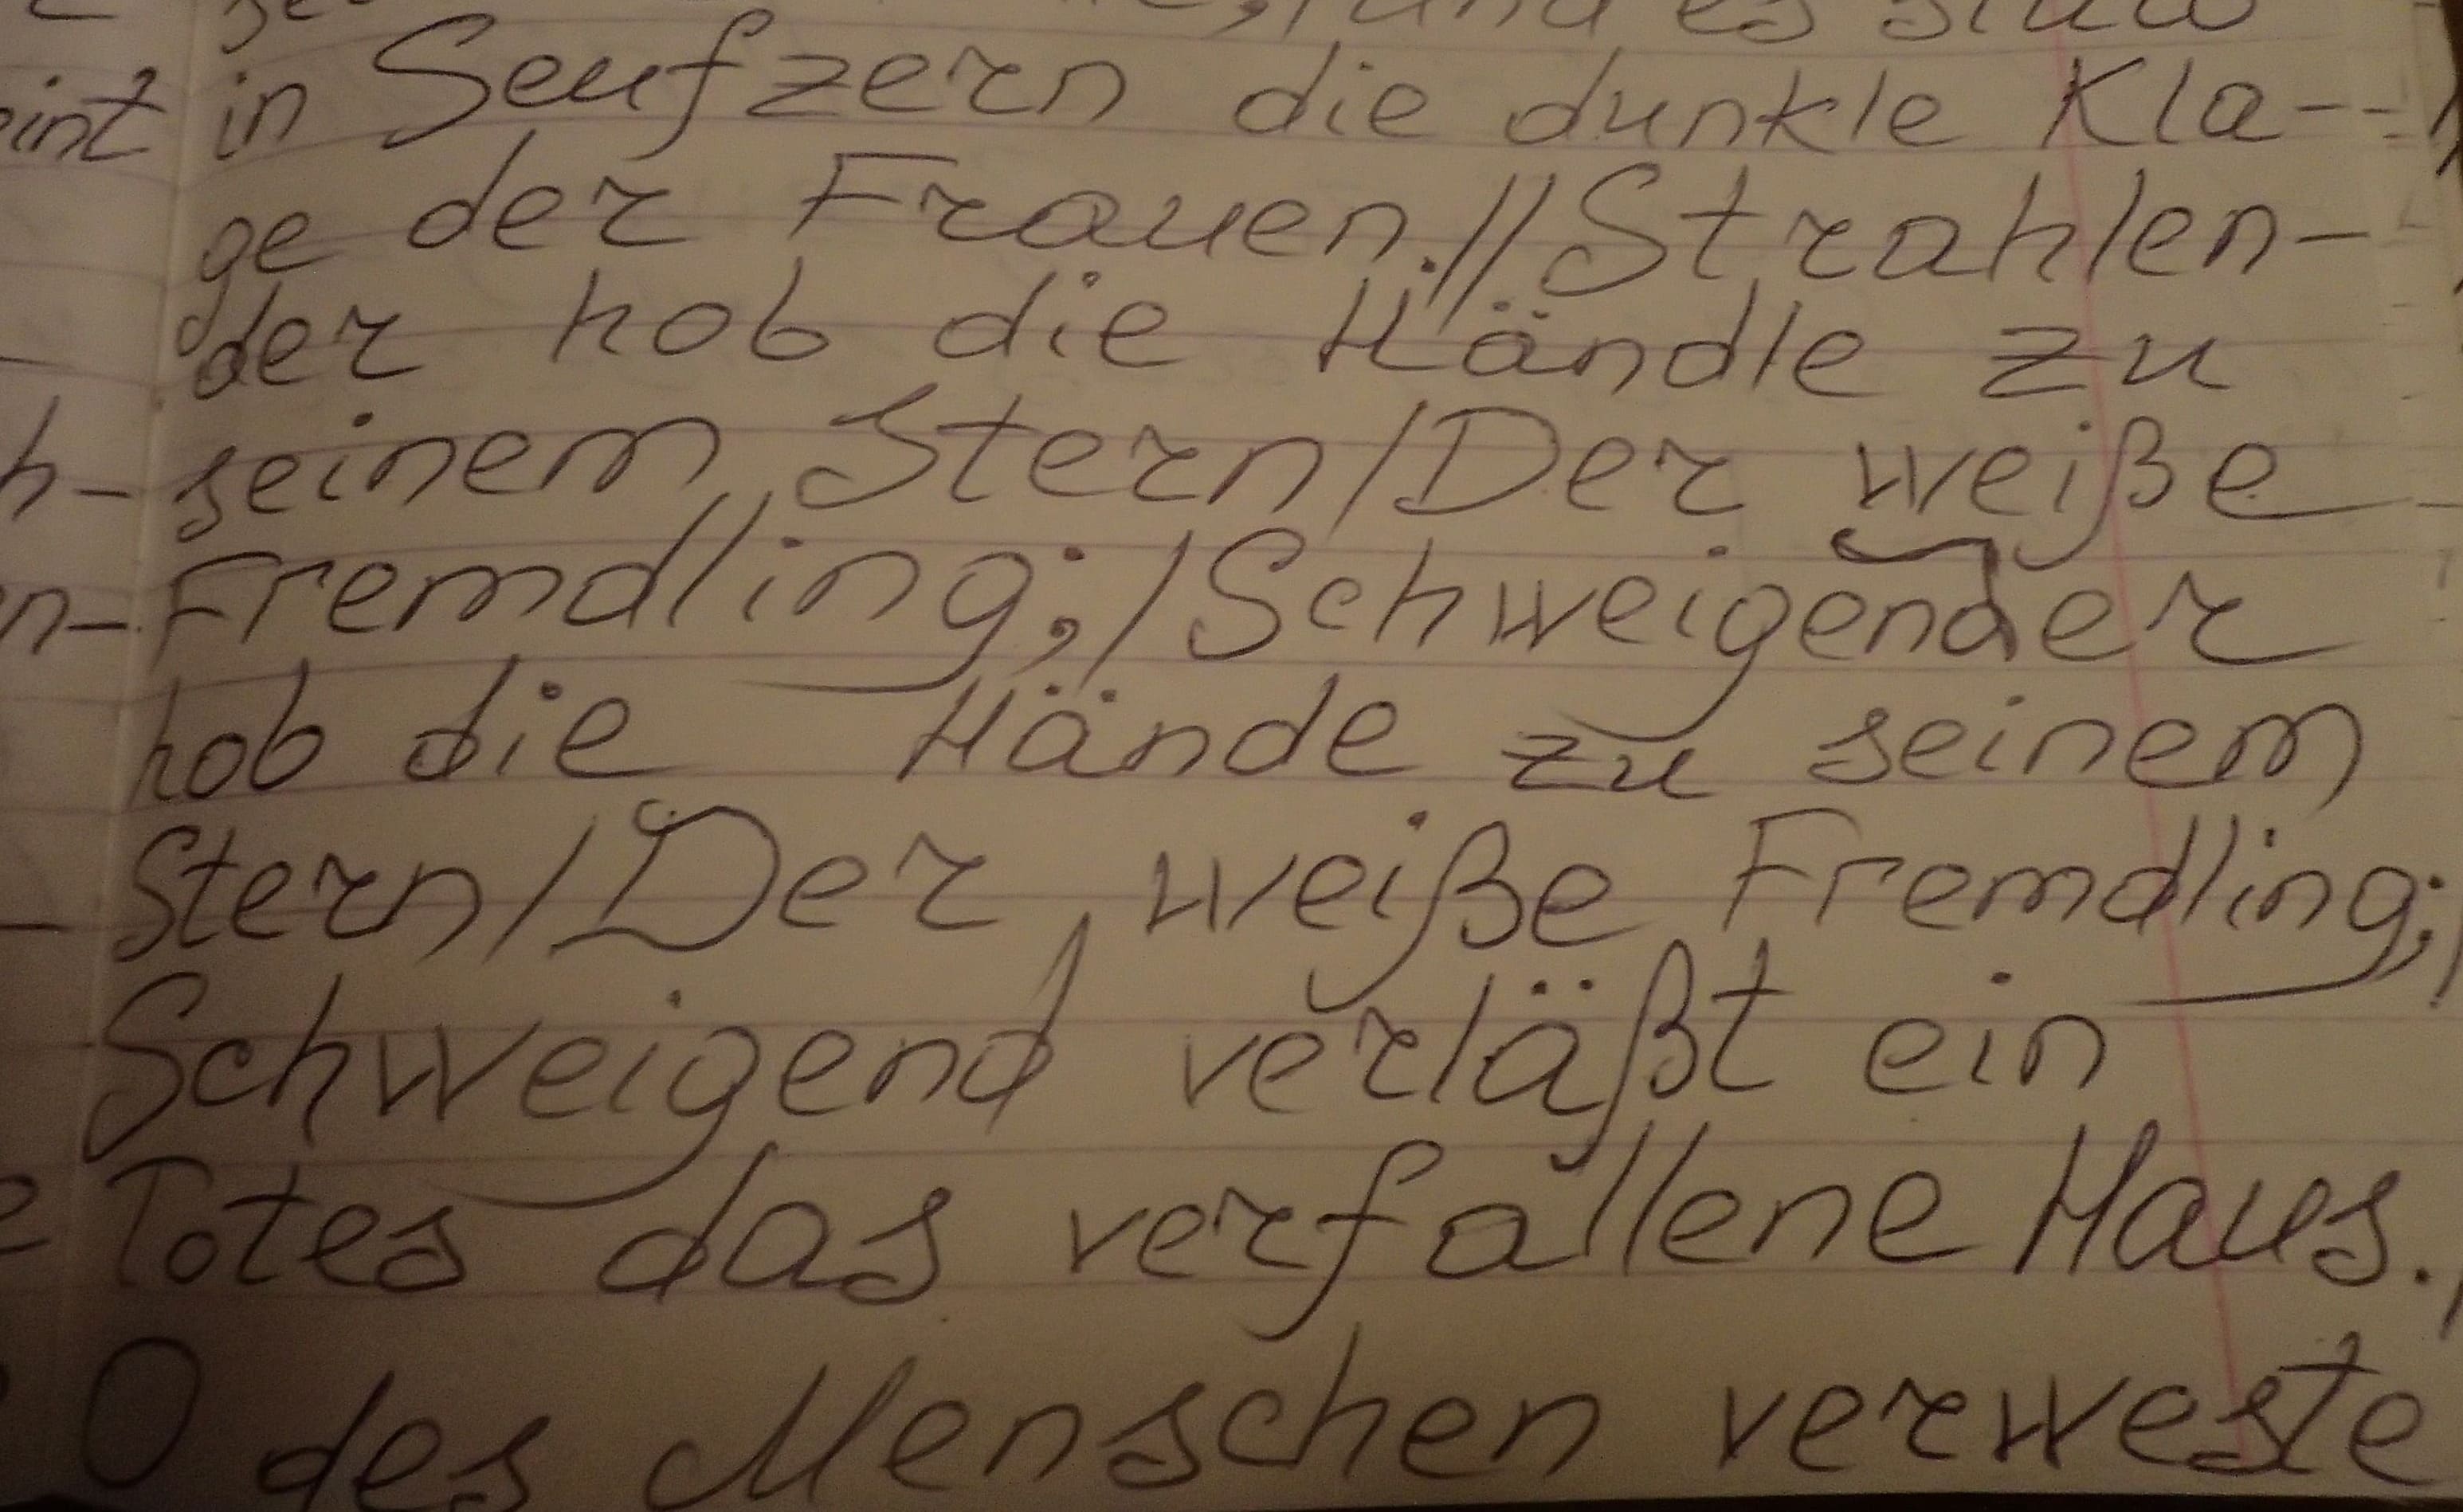 und es
in Seufzern die dunkle Kla--
ge der Frauen.//Strahlen-
der hob die Händle zu
seinem Stern/Der weiße
Fremdling;/Schweigender
hob die Hände zu seinem
Stern/Der weiße Fremdling;/
Schweigend verläßt ein
Totes das verfallene Haus./
O des Menschen verweste